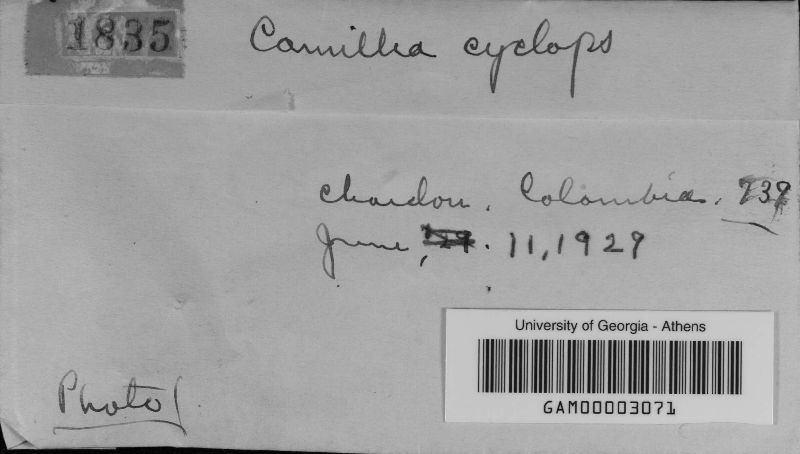 1835
Camillea cyclops
Chardon. Colombia. 739
June, 11, 1929
Photo
University of Georgia - Athens
GAM00003071